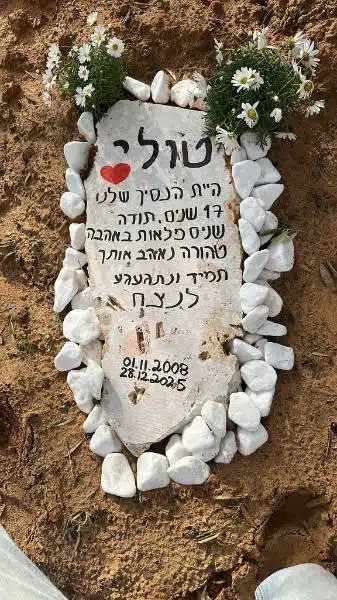 טולי
היית הנסיך שלנו
17 שנים, תודה
שנים מלאות באהבה
טהורה נאהב אותך
תמיד ונתגעגע
לנצח
01.11.2008
28.12.2025